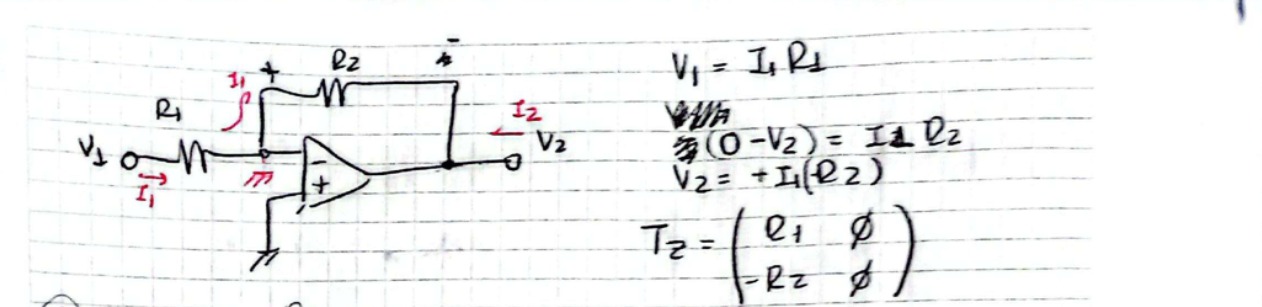 R2
+
-
I1
R1
V1
I1
-
+
I2
V2
V1 = I1 R1
(0-V2) = I1 R2
V2 = +I1(-R2)
TZ = ( R1 ∅
-R2 ∅ )